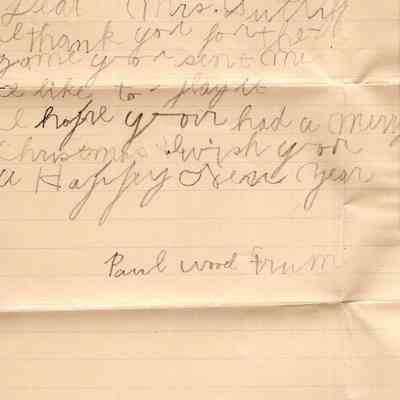 Dear Mrs. Sutliff
I thank you for the
game you sent me
I like to play it
I hope your had a Merry
Christmas I wish you
a Happy New Year
Paul Wood Frum